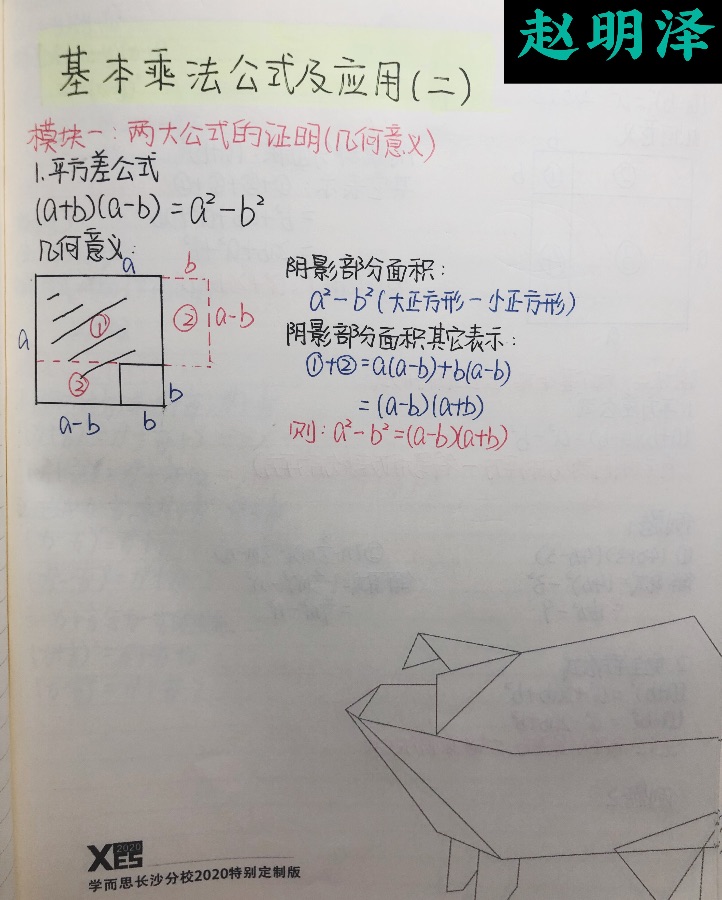 赵明泽
基本乘法公式及应用(二)
模块一:两大公式的证明(几何意义)
1.平方差公式
(a+b)(a-b)=a²-b²
几何意义:
a
b
①
②
a-b
a
②
b
a-b
b
阴影部分面积:
a²-b²(大正方形-小正方形)
阴影部分面积其它表示:
①+②=a(a-b)+b(a-b)
=(a-b)(a+b)
则:a²-b²=(a-b)(a+b)
XES 2020
学而思长沙分校2020特别定制版